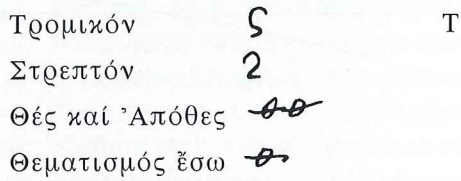 Τρομικόν Τ
Στρεπτόν
Θές καί Ἀπόθες
Θεματισμός ἔσω